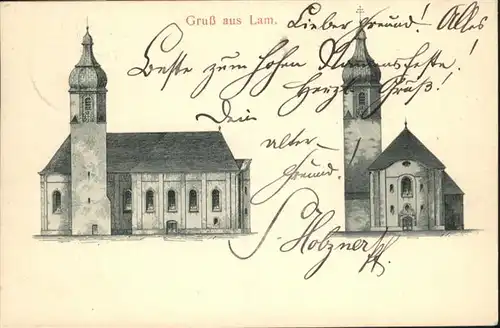 Gruß aus Lam.
Lieber Freund! Alles
Beste zum hohen Namensfeste.
Herzl. Gruß!
Dein
alter
Freund.
S. Holzner